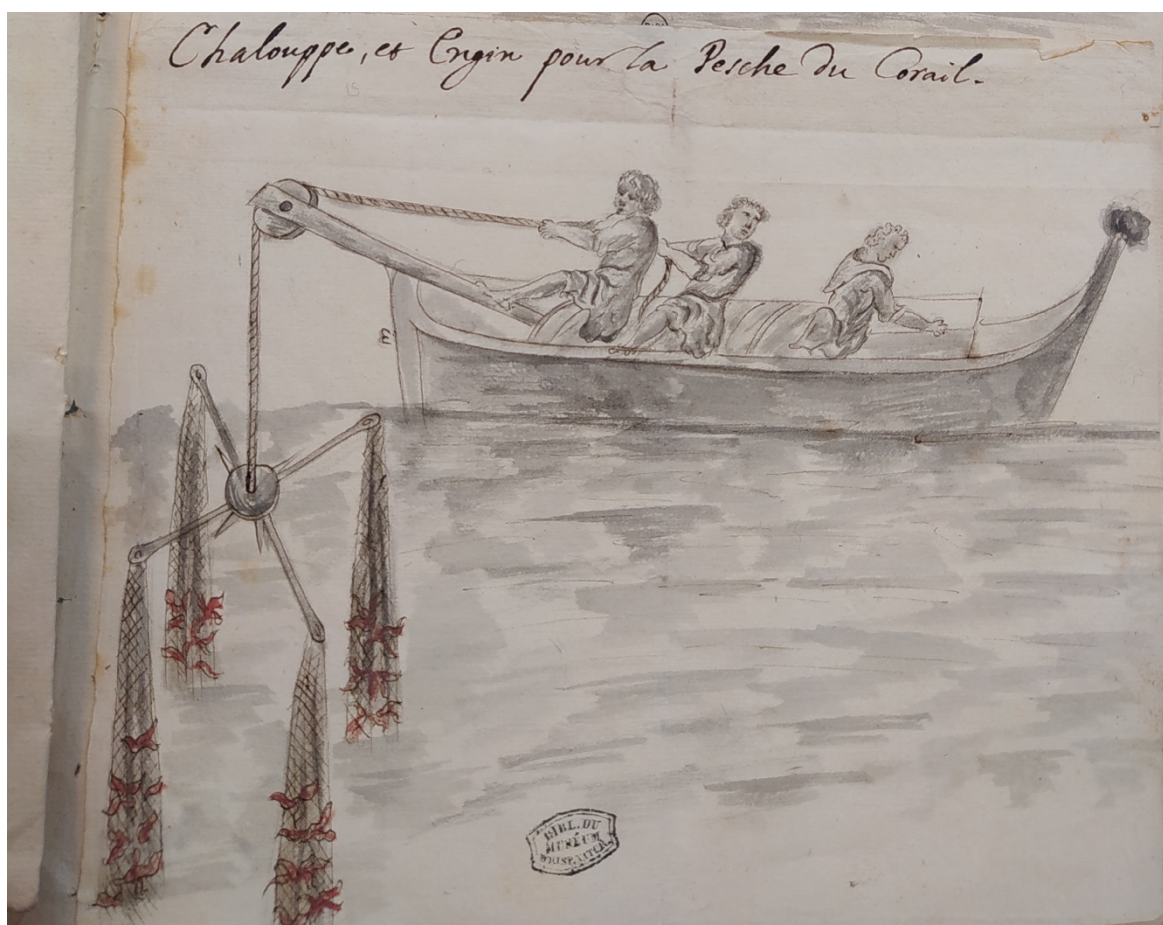 Chalouppe, et Engin pour la Pesche du Corail.
BIBL. DU
MUSÉUM